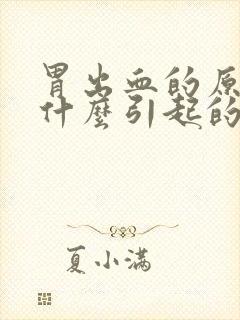 胃出血的原
什麼引起的
夏小满